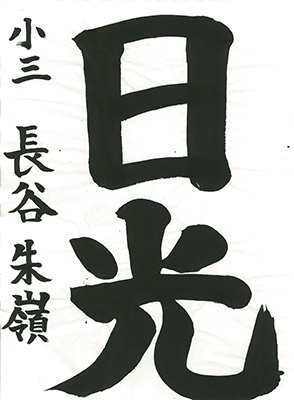 日光
小三 長谷朱嶺